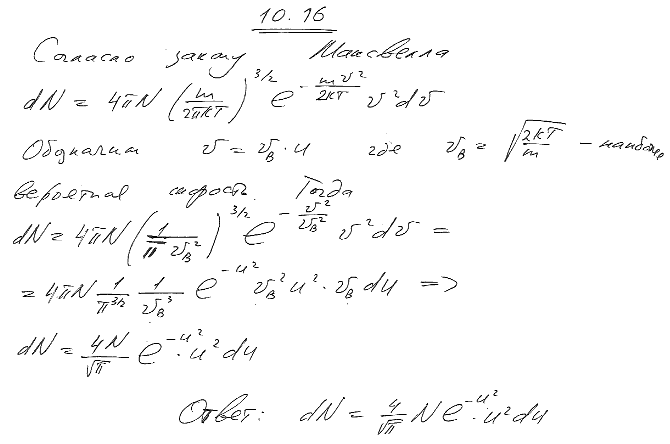 10.16
Согласно закону Максвелла
dN = 4πN (m/2πkT)^3/2 e^-mv²/2kT v²dv
Обозначим v = v_B · u где v_B = √(2kT/m) – наиболее
вероятная скорость. Тогда
dN = 4πN (1/π v_B²)^3/2 e^-v²/v_B² v²dv =
= 4πN 1/π^3/2 1/v_B³ e^-u² v_B² u² · v_B du =>
dN = 4N/√π e^-u² · u² du
Ответ: dN = 4/√π N e^-u² · u² du